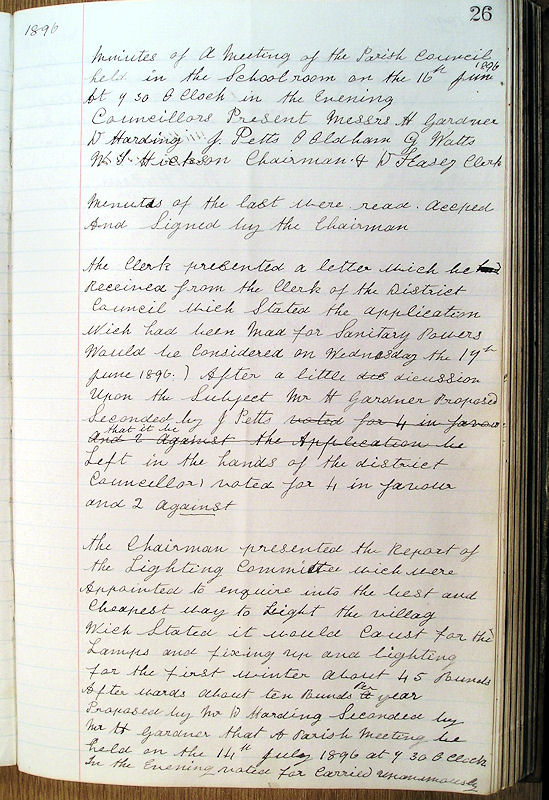 26
1896
Minutes of A Meeting of the Parish Council
held in the Schoolroom on the 16th June 1896
At 7 30 O Clock in the Evening
Councillors Present Messrs H Gardner
W Harding J. Petts O Oldham G Watts
W. S. Hickson Chairman & W Feasey Clerk
Minutes of the last were read. Accped
And Signed by the Chairman
the Clerk presented a letter wich he had
Received from the Clerk of the District
Council Wich Stated the Application
Wich had been Mad for Sanitary Powers
Would be Considered on Wednesday the 17th
June 1896.) After a little dicussion
Upon the Subject Mr H Gardner Proposed
Seconded by J Petts voted for 4 in favour
that it be
And 2 Against the Application be
Left in the hands of the district
Councillor) voted for 4 in favour
and 2 against
the Chairman presented the Report of
the Lighting Committee wich were
Appointed to enquire into the best and
Cheapest way to Light the villag
Wich Stated it would Caust for the
Lamps and fixing up and lighting
for the first winter about 45 Pounds
After wards about ten Punds Per year
Proposed by Mr W Harding Seconded by
Mr H Gardner that A Parish Meeting be
held on the 14th July 1896 at 7 30 O Clock
In the Evening voted for Carried unanimously